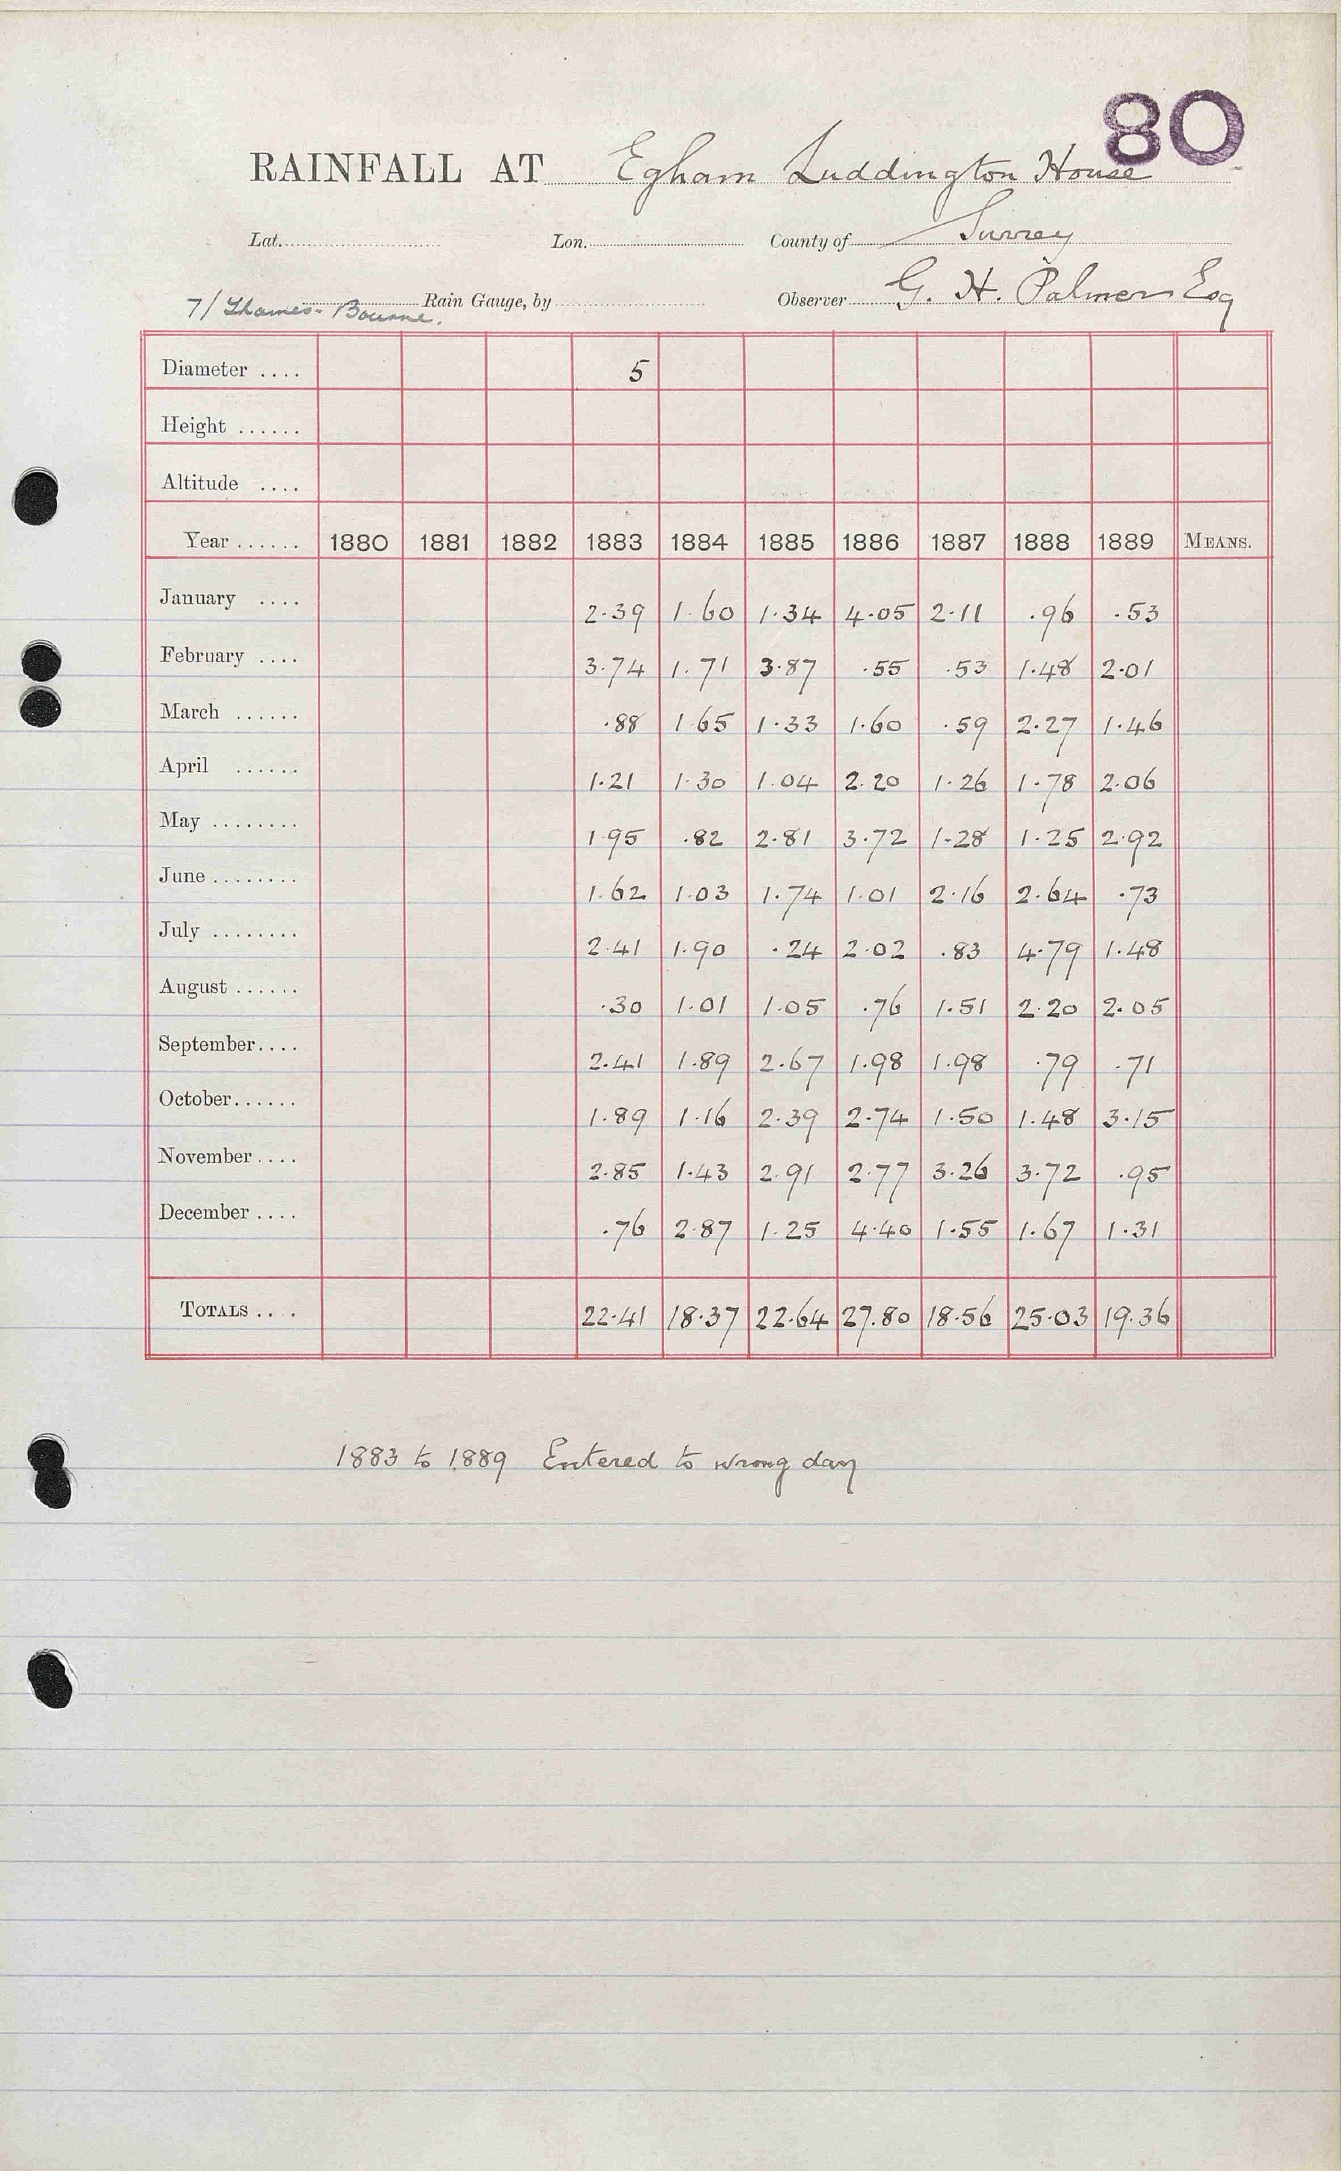 80
RAINFALL AT Egham Luddington House
Lat. Lon. County of Surrey
7/ Thames-Bourne. Rain Gauge, by Observer G. H. Palmer Esq
Diameter .... 5
Height ......
Altitude ....
Year ...... 1880 1881 1882 1883 1884 1885 1886 1887 1888 1889 MEANS.
January .... 2.39 1.60 1.34 4.05 2.11 .96 .53
February .... 3.74 1.71 3.87 .55 .53 1.48 2.01
March ...... .88 1.65 1.33 1.60 .59 2.27 1.46
April ...... 1.21 1.30 1.04 2.20 1.26 1.78 2.06
May ........ 1.95 .82 2.81 3.72 1.28 1.25 2.92
June ........ 1.62 1.03 1.74 1.01 2.16 2.64 .73
July ........ 2.41 1.90 .24 2.02 .83 4.79 1.48
August ...... .30 1.01 1.05 .76 1.51 2.20 2.05
September.... 2.41 1.89 2.67 1.98 1.98 .79 .71
October...... 1.89 1.16 2.39 2.74 1.50 1.48 3.15
November.... 2.85 1.43 2.91 2.77 3.26 3.72 .95
December .... .76 2.87 1.25 4.40 1.55 1.67 1.31
TOTALS .... 22.41 18.37 22.64 27.80 18.56 25.03 19.36
1883 to 1889 Entered to wrong day